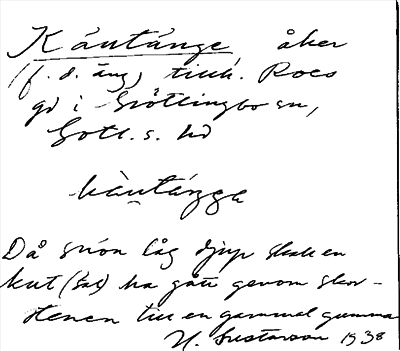 Käutänge, åker
(f. d. äng) tillh. Roes
gd i Gröttingbo sn,
Gotl. s. hd
kàutä́ngga
Då snön låg djup skall en
kut (säl) ha gått genom skor-
stenen till en gammal gumma
H. Gustavson 1938